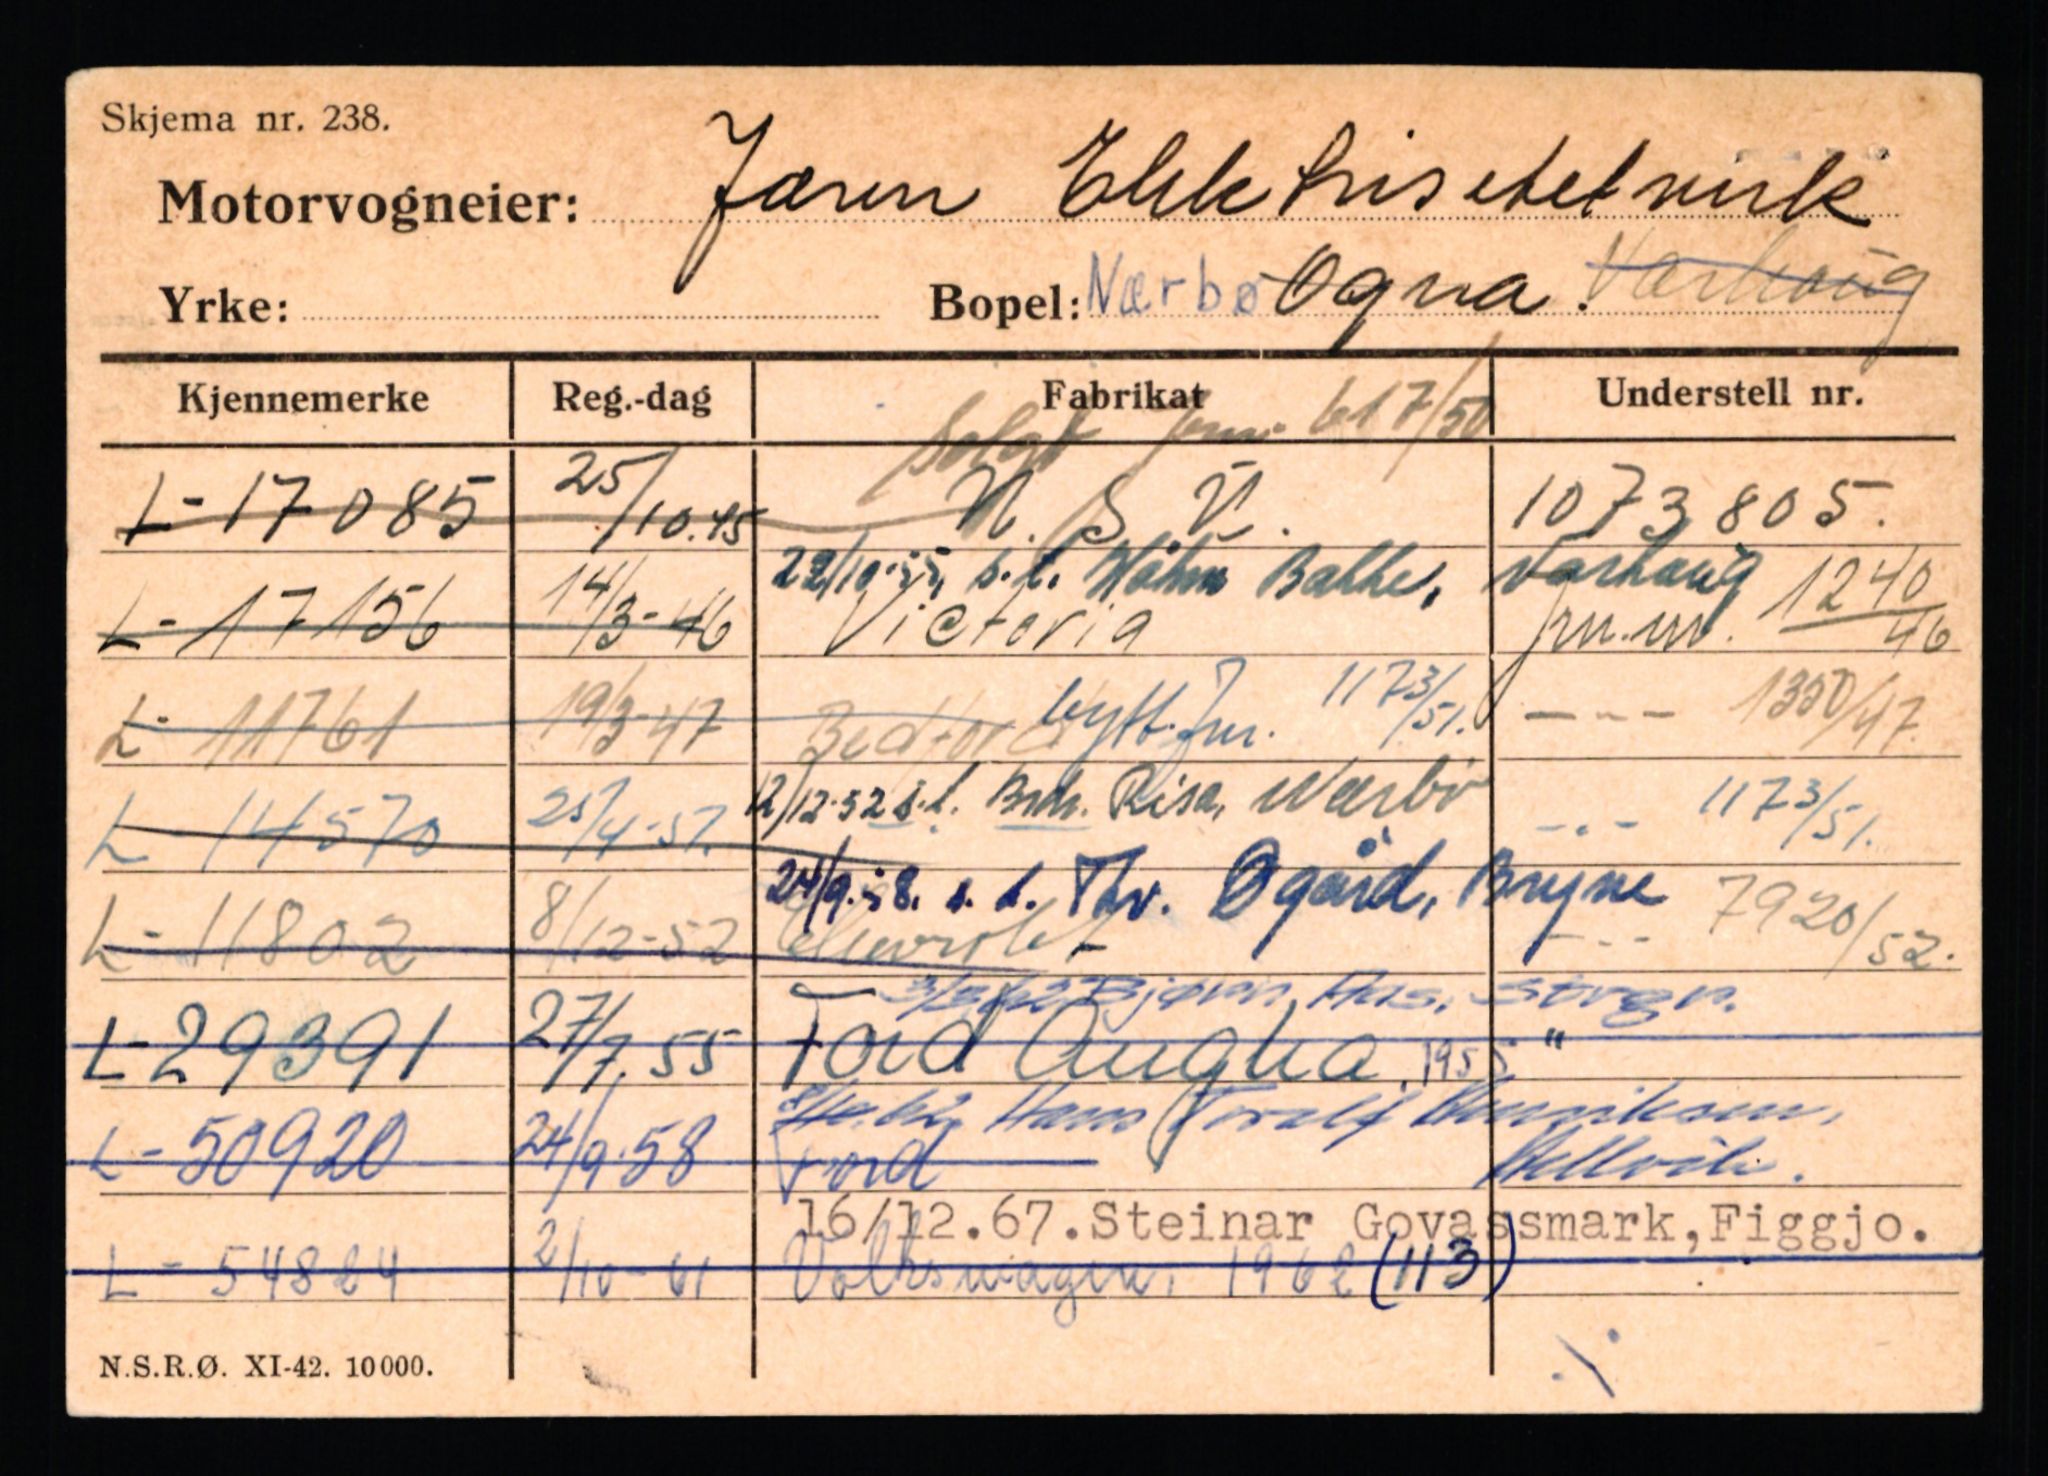 Skjema nr. 238.
Motorvogneier: Jæren Elektrisitetsverk
Yrke: Bopel: Nærbø Ogna. Varhaug
Kjennemerke Reg.-dag Fabrikat Understell nr.
Solgt jnr. 617/50
L-17085 25/10.45 N. S. U. 1073805.
22/10-55, s.t. Håkon Bakke, Varhaug
L-17156 14/3-46 Victoria jnr.nr. 1240/46
L-11761 19/3-47 Bedford bytt. Jnr. 1173/51. --- 1350/47.
12/12-52 s.t. Brdr. Risa, Nærbø
L-14570 25/4-51. -.- 1173/51.
24/9-58. s. t. Thv. Øgård, Bryne
L-11802 8/12-52 Chevrolet --- 7920/52.
3/3/62 Bjørn Aas, Stvgr.
L-29391 27/7.55 Ford Anglia, 1955 "
8/10.62, Hans Toralf Henriksen, Hellvik.
L-50920 24/9.58 Ford
16/12.67.Steinar Govassmark,Figgjo.
L-54824 2/10-61 Volkswagen, 1962 (113)
N.S.R.Ø. XI-42. 10000.